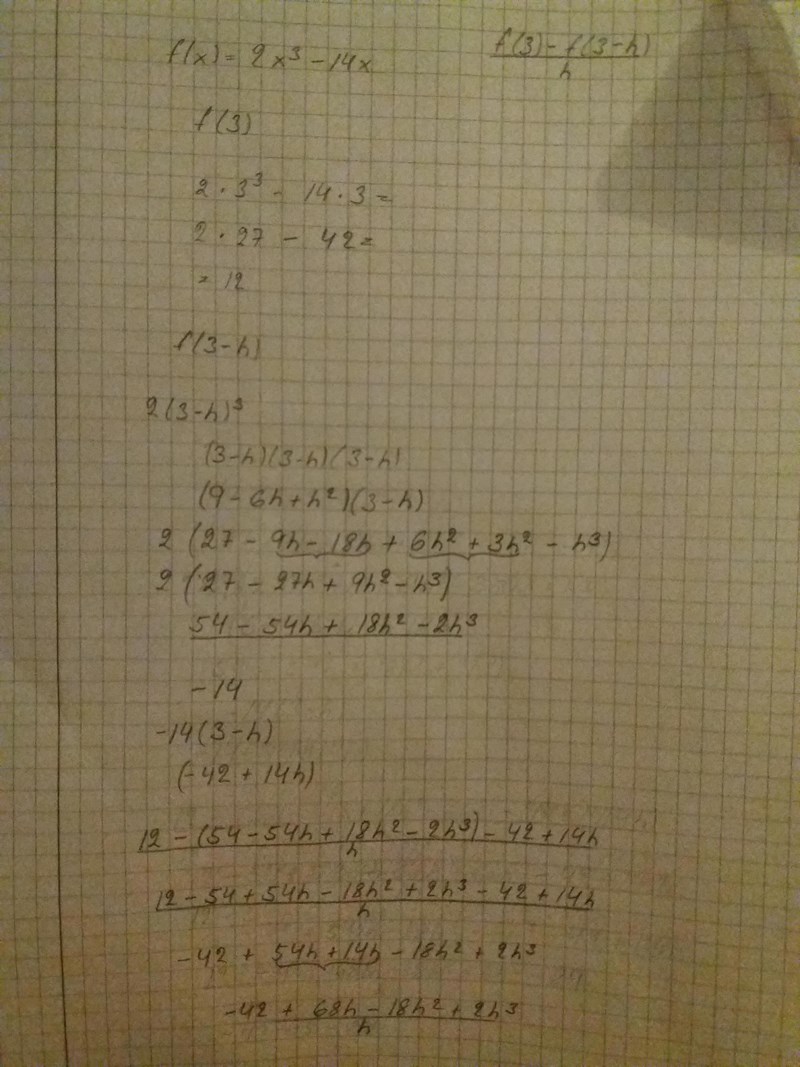 f(x) = 2x³ - 14x
f(3) - f(3-h)
h
f(3)
2 · 3³ - 14 · 3 =
2 · 27 - 42 =
= 12
f(3-h)
2(3-h)³
(3-h)(3-h)(3-h)
(9 - 6h + h²)(3-h)
2 (27 - 9h - 18h + 6h² + 3h² - h³)
2 (27 - 27h + 9h² - h³)
54 - 54h + 18h² - 2h³
-14
-14(3-h)
(-42 + 14h)
12 - (54 - 54h + 18h² - 2h³) - 42 + 14h
h
12 - 54 + 54h - 18h² + 2h³ - 42 + 14h
h
-42 + 54h + 14h - 18h² + 2h³
-42 + 68h - 18h² + 2h³
h